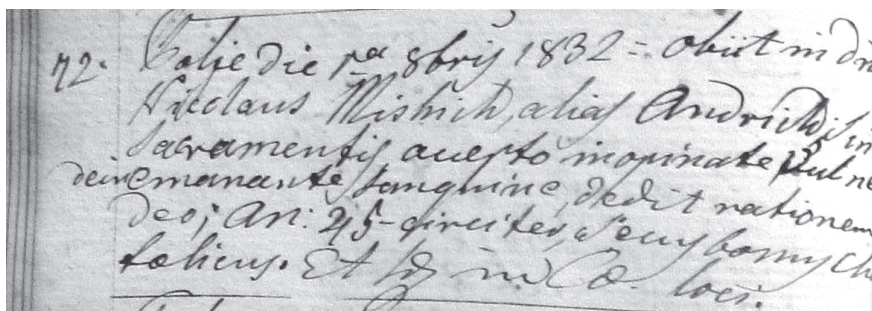 72. Folje die 1ma 8bris 1832 = obiit in dn
Nicolaus Mishich, alias Andrich, sin
Sacramentis auerto inopinate vulne
dein emanante sanguine, dedit rationem
deo; An: 45-circiter,
tolicus. Et in Coe. loci.